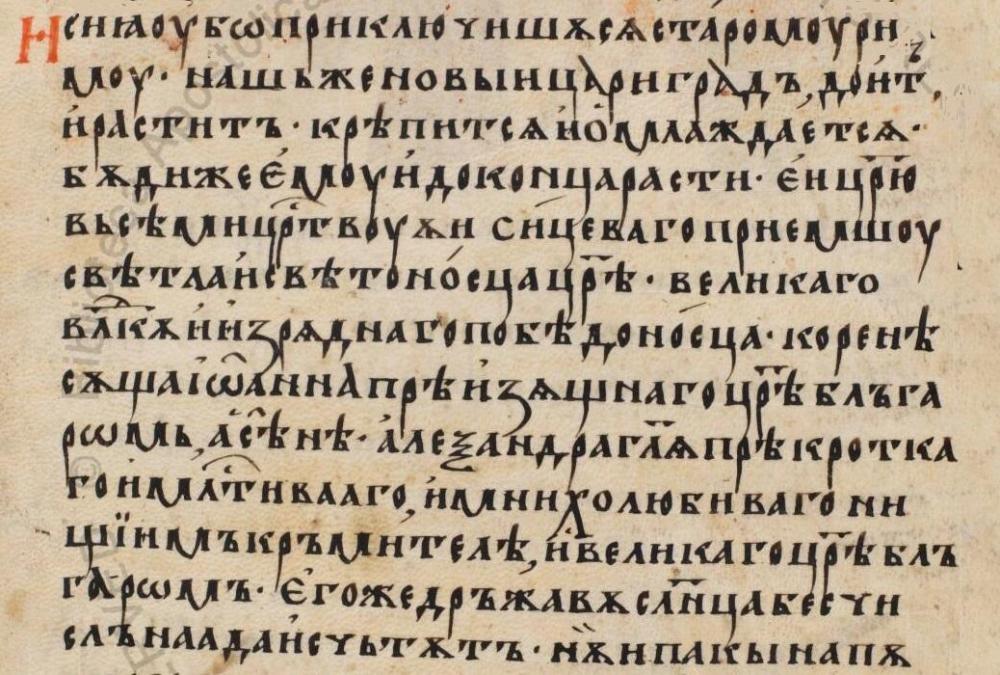 И сиꙗ оубѡ приключишѧсѧ старомоу ри
моу· нашъ же новыи цариградъ, доит,
и раститъ· крѣпитсѧ и ѡмлаждаетсѧ·
бѫди же емоу и до конца расти· еи цр҃ю
вьсѣми цр҃твоуѫи сицеваго приемшоу
свѣтла и свѣтоносца цр҃ѣ· великаго
влⷣкѫ и изрѧднаго побѣдоносца· коренѣ
сѫща іѡанна прѣизѧщнаго цр҃ѣ блъга
рѡмь, асѣнѣ· алеѯандра гл҃ѧ прѣкротка
го и млⷭ҇тиваго, и мнихолюбиваго ни
щїимъ кръмителѣ, и великаго цр҃ѣ блъ
гарѡмъ· егоже дръжавѫ слн҃ца бесчи
слънаа да исчьтѫтъ· нѫ и пакы напѫ